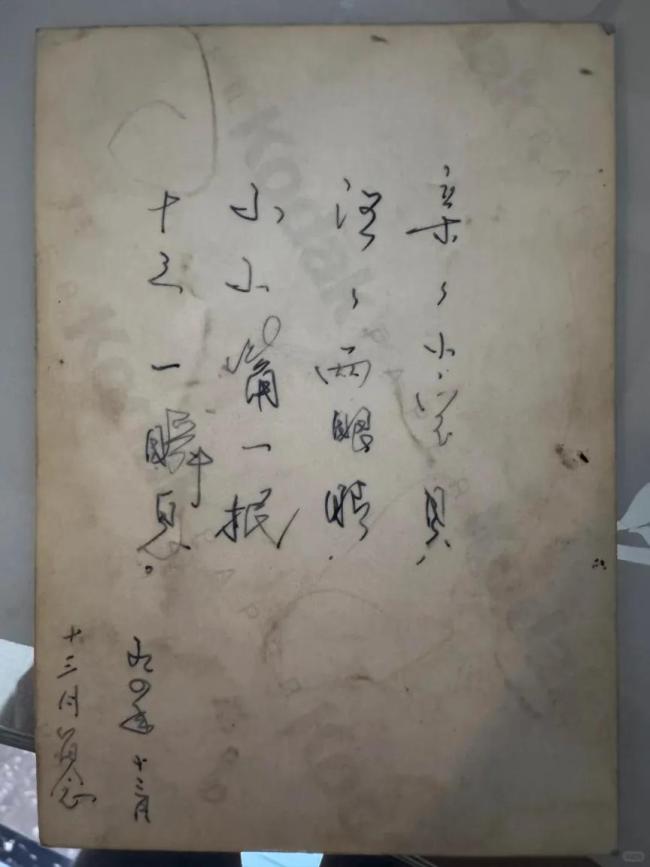 亲々小宝贝,
々两眼睛,
小小嘴一抿,
十三一瞬息。
九〇年十二月
十三月留念
Kodak